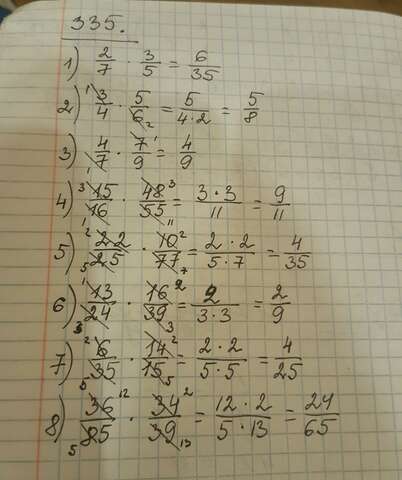 335.
1) 2/7 · 3/5 = 6/35
2) 3/4 · 5/6 = 5/(4·2) = 5/8
3) 4/7 · 7/9 = 4/9
4) 15/16 · 48/55 = (3·3)/11 = 9/11
5) 22/25 · 10/77 = (2·2)/(5·7) = 4/35
6) 13/24 · 16/39 = 2/(3·3) = 2/9
7) 6/35 · 14/15 = (2·2)/(5·5) = 4/25
8) 36/85 · 34/39 = (12·2)/(5·13) = 24/65